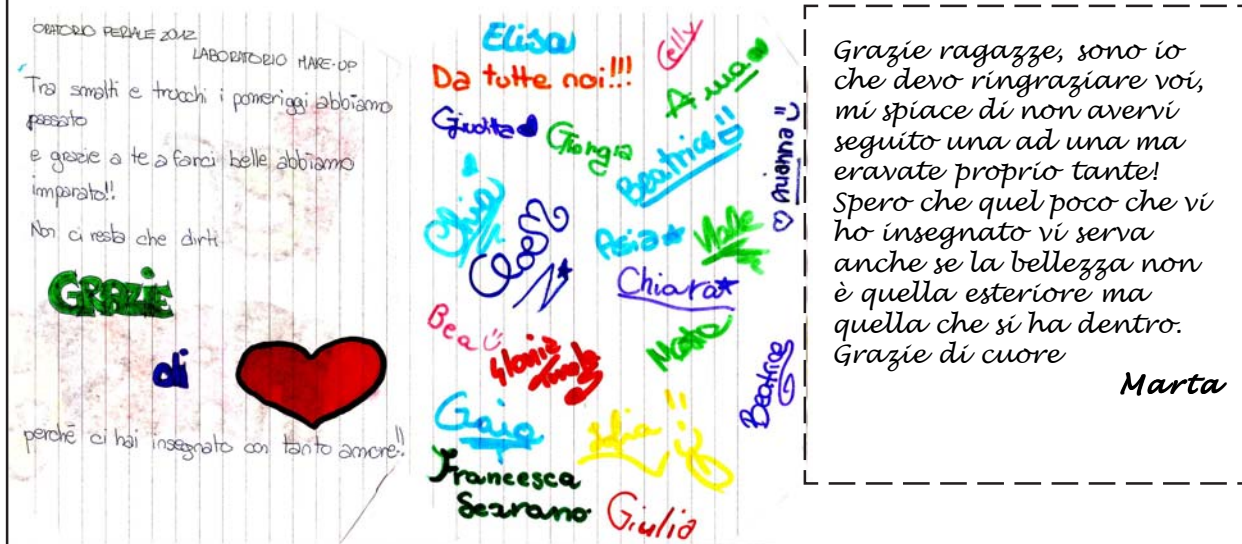 ORATORIO FERIALE 2012
LABORATORIO MAKE-UP
Tra smalti e trucchi i pomeriggi abbiamo
passato
e grazie a te a farci belle abbiamo
imparato!!
Non ci resta che dirti
GRAZIE
di
perché ci hai insegnato con tanto amore!!
Elisa
Celly
Da tutte noi!!!
Anna
Giuditta
Giorgia
Beatrice
Arianna
Asia
Chiara
Bea
Gloria
Beatrice
Gaia
Francesca
Serrano
Giulia
Grazie ragazze, sono io
che devo ringraziare voi,
mi spiace di non avervi
seguito una ad una ma
eravate proprio tante!
Spero che quel poco che vi
ho insegnato vi serva
anche se la bellezza non
è quella esteriore ma
quella che si ha dentro.
Grazie di cuore
Marta